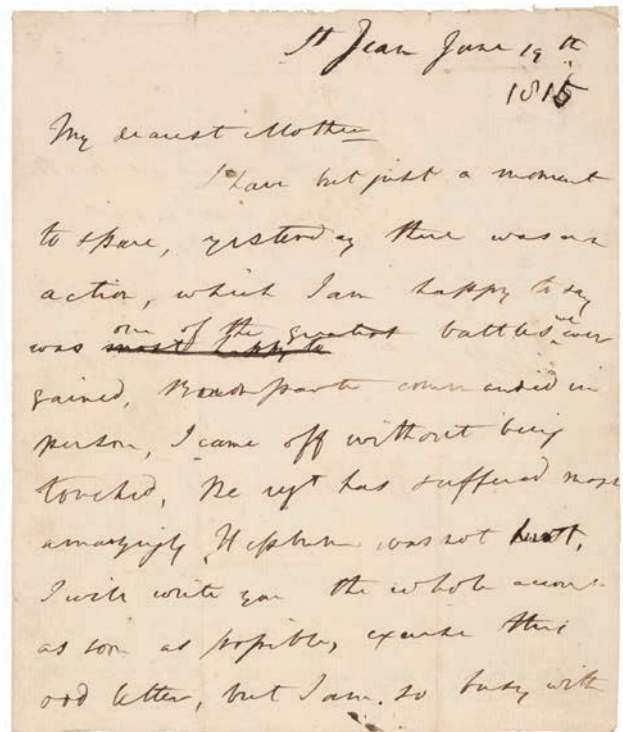 St Jean June 19th
1815
My dearest Mother
I have but just a moment
to spare, yesterday there was an
action, which I am happy to say
was most happy to one of the greatest battles we ever
gained, Buonaparte commanded in
person, I came off without being
touched, The regt has suffered most
amazingly, Hepburn was not hurt,
I will write you the whole account
as soon as possible, excuse this
odd letter, but I am so busy with